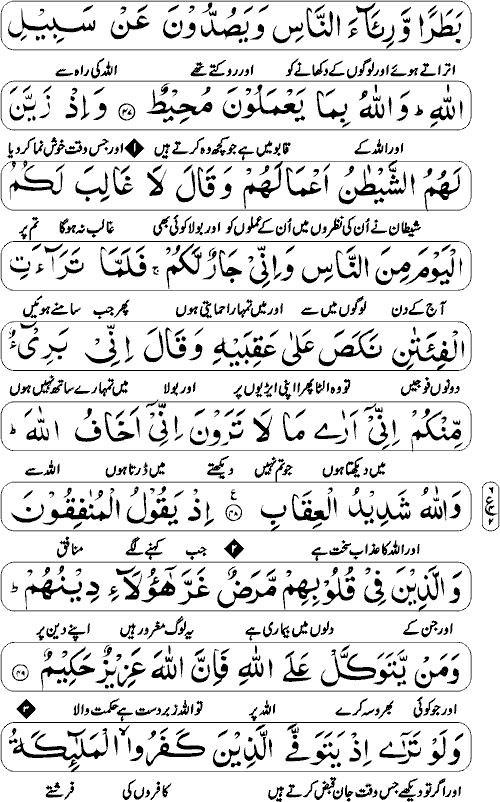 بَطَرًا وَّرِئَآءَ النَّاسِ وَيَصُدُّوْنَ عَنْ سَبِيْلِ
اتراتے ہوئے اور لوگوں کے دکھانے کو اور روکتے تھے اللہ کی راہ سے
اللّٰهِ ؕ وَاللّٰهُ بِمَا يَعْمَلُوْنَ مُحِيْطٌ ﴿۴۷﴾ وَاِذْ زَيَّنَ
اور اللہ کے قابو میں ہے جو کچھ وہ کرتے ہیں ۱ اور جس وقت خوش نما کر دیا
لَهُمُ الشَّيْطٰنُ اَعْمَالَهُمْ وَقَالَ لَا غَالِبَ لَكُمُ
شیطان نے اُن کی نظروں میں اُن کے عملوں کو اور بولا کوئی بھی غالب نہ ہوگا تم پر
الْيَوْمَ مِنَ النَّاسِ وَاِنِّيْ جَارٌ لَّكُمْ ۚ فَلَمَّا تَرَآءَتِ
آج کے دن لوگوں میں سے اور میں تمہارا حمایتی ہوں پھر جب سامنے ہوئیں
الْفِئَتٰنِ نَكَصَ عَلٰى عَقِبَيْهِ وَقَالَ اِنِّيْ بَرِيْٓءٌ
دونوں فوجیں تو وہ الٹا پھرا اپنی ایڑیوں پر اور بولا میں تمہارے ساتھ نہیں ہوں
مِّنْكُمْ اِنِّيْٓ اَرٰى مَا لَا تَرَوْنَ اِنِّيْٓ اَخَافُ اللّٰهَ ؕ
میں دیکھتا ہوں جو تم نہیں دیکھتے میں ڈرتا ہوں اللہ سے
وَاللّٰهُ شَدِيْدُ الْعِقَابِ ﴿۴۸﴾ اِذْ يَقُوْلُ الْمُنٰفِقُوْنَ
اور اللہ کا عذاب سخت ہے ۲ جب کہنے لگے منافق
وَالَّذِيْنَ فِيْ قُلُوْبِهِمْ مَّرَضٌ غَرَّ هٰٓؤُلَآءِ دِيْنُهُمْ ؕ
اور جن کے دلوں میں بیماری ہے یہ لوگ مغرور ہیں اپنے دین پر
وَمَنْ يَّتَوَكَّلْ عَلَى اللّٰهِ فَاِنَّ اللّٰهَ عَزِيْزٌ حَكِيْمٌ ﴿۴۹﴾
اور جو کوئی بھروسہ کرے اللہ پر تو اللہ زبردست ہے حکمت والا ۳
وَلَوْ تَرٰٓى اِذْ يَتَوَفَّى الَّذِيْنَ كَفَرُوا ۙ الْمَلٰٓئِكَةُ
اور اگر تو دیکھے جس وقت جان قبض کرتے ہیں کافروں کی فرشتے